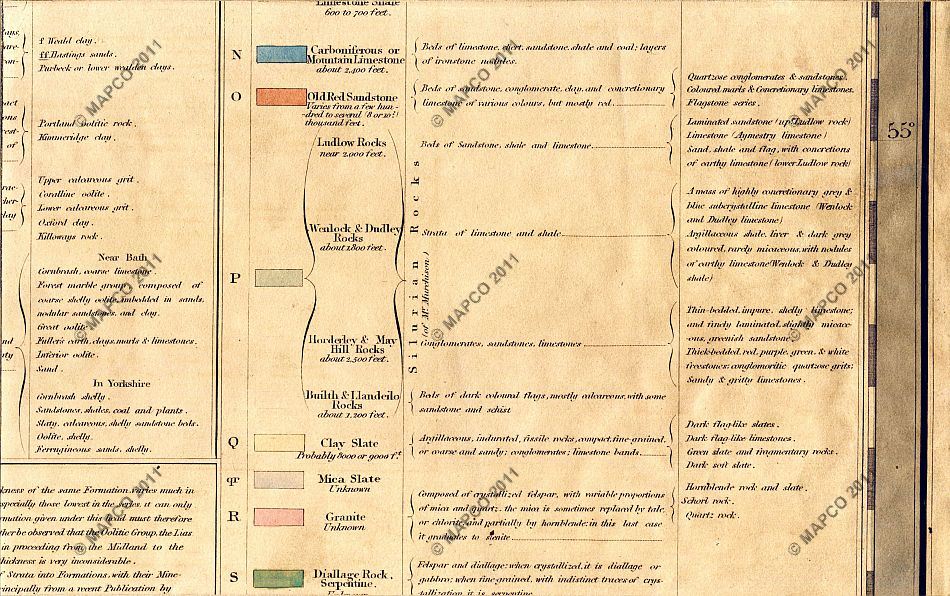 Limestone Shale
600 to 700 feet.
f Weald clay.
ff Hastings sands.
Purbeck or lower wealden clays.
Portland oolitic rock.
Kimmeridge clay.
Upper calcareous grit.
Coralline oolite.
Lower calcareous grit.
Oxford clay.
Killoways rock.
Near Bath
Cornbrash, coarse limestone
Forest marble group composed of
coarse shelly oolite, imbedded in sands,
nodular sandstones, and clay.
Great oolite
Fuller's earth, clays, marls & limestones.
Inferior oolite.
Sand.
In Yorkshire
Cornbrash shelly.
Sandstones, shales, coal and plants.
Slaty, calcareous, shelly sandstone beds.
Oolite, shelly.
Ferrugineous sands, shelly.
kness of the same Formation varies much in
specially those lowest in the series, it can only
rmation given under this head must therefore
ther be observed that the Oolitic Group, the Lias
in proceeding from the Midland to the
hickness is very inconsiderable.
f Strata into Formations, with their Mine-
rincipally from a recent Publication by
N
Carboniferous or
Mountain Limestone
about 2,400 feet.
Beds of limestone, chert, sandstone, shale and coal; layers
of ironstone nodules.
O
Old Red Sandstone
Varies from a few hun-
-dred to several
thousand feet.
Beds of sandstone, conglomerate, clay, and concretionary
limestone of various colours, but mostly red.
Quartzose conglomerates & sandstones.
Coloured marls & Concretionary limestones.
Flagstone series.
P
Silurian Rocks
(of Mr. Murchison.)
Ludlow Rocks
near 2,000 feet.
Beds of Sandstone, shale and limestone
Laminated sandstone (up. Ludlow rock)
Limestone (Aymestry limestone)
Sand, shale and flag, with concretions
of earthy limestone (lower Ludlow rock)
Wenlock & Dudley
Rocks
about 1,800 feet.
Strata of limestone and shale
A mass of highly concretionary grey &
blue subcrystalline limestone (Wenlock
and Dudley limestone)
Argillaceous shale, liver & dark grey
coloured, rarely micaceous, with nodules
of earthy limestone (Wenlock & Dudley
shale)
Horderley & May
Hill Rocks
about 2,500 feet.
Conglomerates, sandstones, limestones
Thin-bedded, impure, shelly limestone;
and finely laminated, slightly micace-
-ous, greenish sandstone
Thick-bedded, red, purple, green, & white
freestones; conglomeritic quartzose grits;
Sandy & gritty limestones.
Builth & Llandeilo
Rocks
about 1,200 feet.
Beds of dark coloured flags, mostly calcareous, with some
sandstone and schist
Q
Clay Slate
Probably 8000 or 9000 ft.
Argillaceous, indurated, fissile rocks, compact, fine-grained,
or coarse and sandy; conglomerates; limestone bands
Dark flag-like slates.
Dark flag-like limestones.
Green slate and fragmentary rocks.
Dark soft slate.
qr
Mica Slate
Unknown
Hornblende rock and slate.
Schorl rock.
Quartz rock.
R
Granite
Unknown
Composed of crystallized felspar, with variable proportions
of mica and quartz. the mica is sometimes replaced by talc,
or chlorite, and partially by hornblende; in this last case
it graduates to sienite
S
Diallage Rock.
Serpentine.
Unknown
Felspar and diallage; when crystallized, it is diallage or
gabbro; when fine-grained, with indistinct traces of crys-
tallization it is serpentine
55°
© MAPCO 2011
© MAPCO 2011
© MAPCO 2011
© MAPCO 2011
© MAPCO 2011
© MAPCO 2011
© MAPCO 2011
© MAPCO 2011
© MAPCO 2011